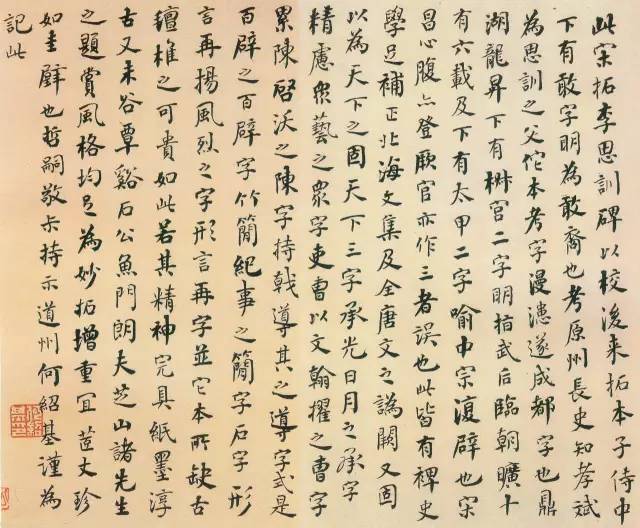 此宋拓李思訓碑以校後来拓本子侍中
下有敢字明為敢裔也考原州長史知孝斌
為思訓之父佗本考字漫漶遂成都字也鼎
湖龍昇下有椒宫二字明指武后臨朝曠十
有六載及下有太甲二字喻中宗復辟也宋
昌心腹亦登厥官亦作三者誤也此皆有裨史
學足補正北海文集及全唐文之譌闕又固
以為天下之固天下三字承光日月之承字
精慮眾藝之眾字吏曹以文翰擢之曹字
累陳啓沃之陳字持戟導其之導字式是
百辟之百辟字竹簡紀事之簡字石字形
言再揚風烈之字形言再字並它本所缺古
氊椎之可貴如此若其精神完具紙墨淳
古又未谷覃谿石公魚門朗夫芝山諸先生
之題賞風格均足為妙拓增重冝荳丈珍
如圭璧也哲嗣敬止持示道州何紹基謹為
記此